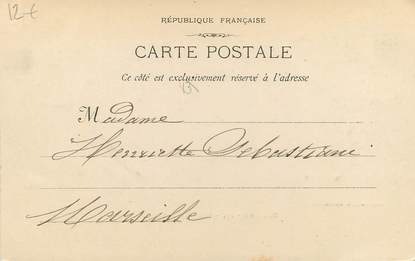 12 €
RÉPUBLIQUE FRANÇAISE
CARTE POSTALE
Ce côté est exclusivement réservé à l'adresse
Madame
Henriette Sebastiani
Marseille